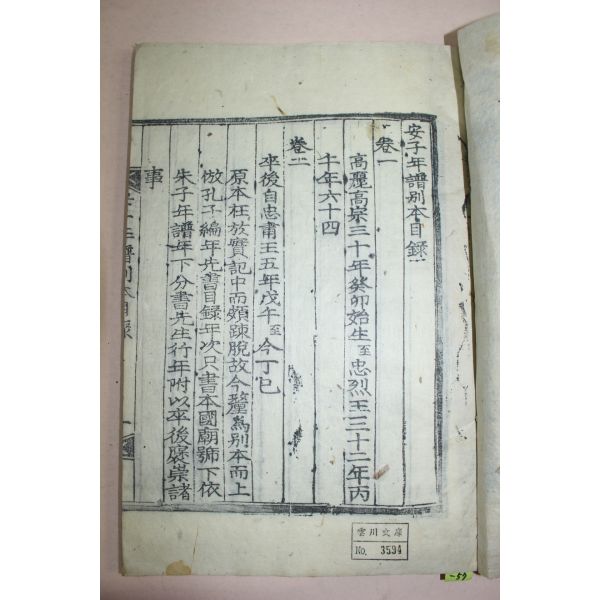 安子年譜別本目錄
卷一
高麗高宗三十年癸卯始生至忠烈王三十二年丙
午年六十四
卷二
卒後自忠肅王五年戊午至今丁巳
原本在於實記中而頗疎脫故今釐爲別本而上
倣孔子編年先書目錄年次只書本國廟號下依
朱子年譜年下分書先生行年附以卒後褒崇諸
事
安子年譜別本目錄
一
雲川文庫
No. 3594
-59